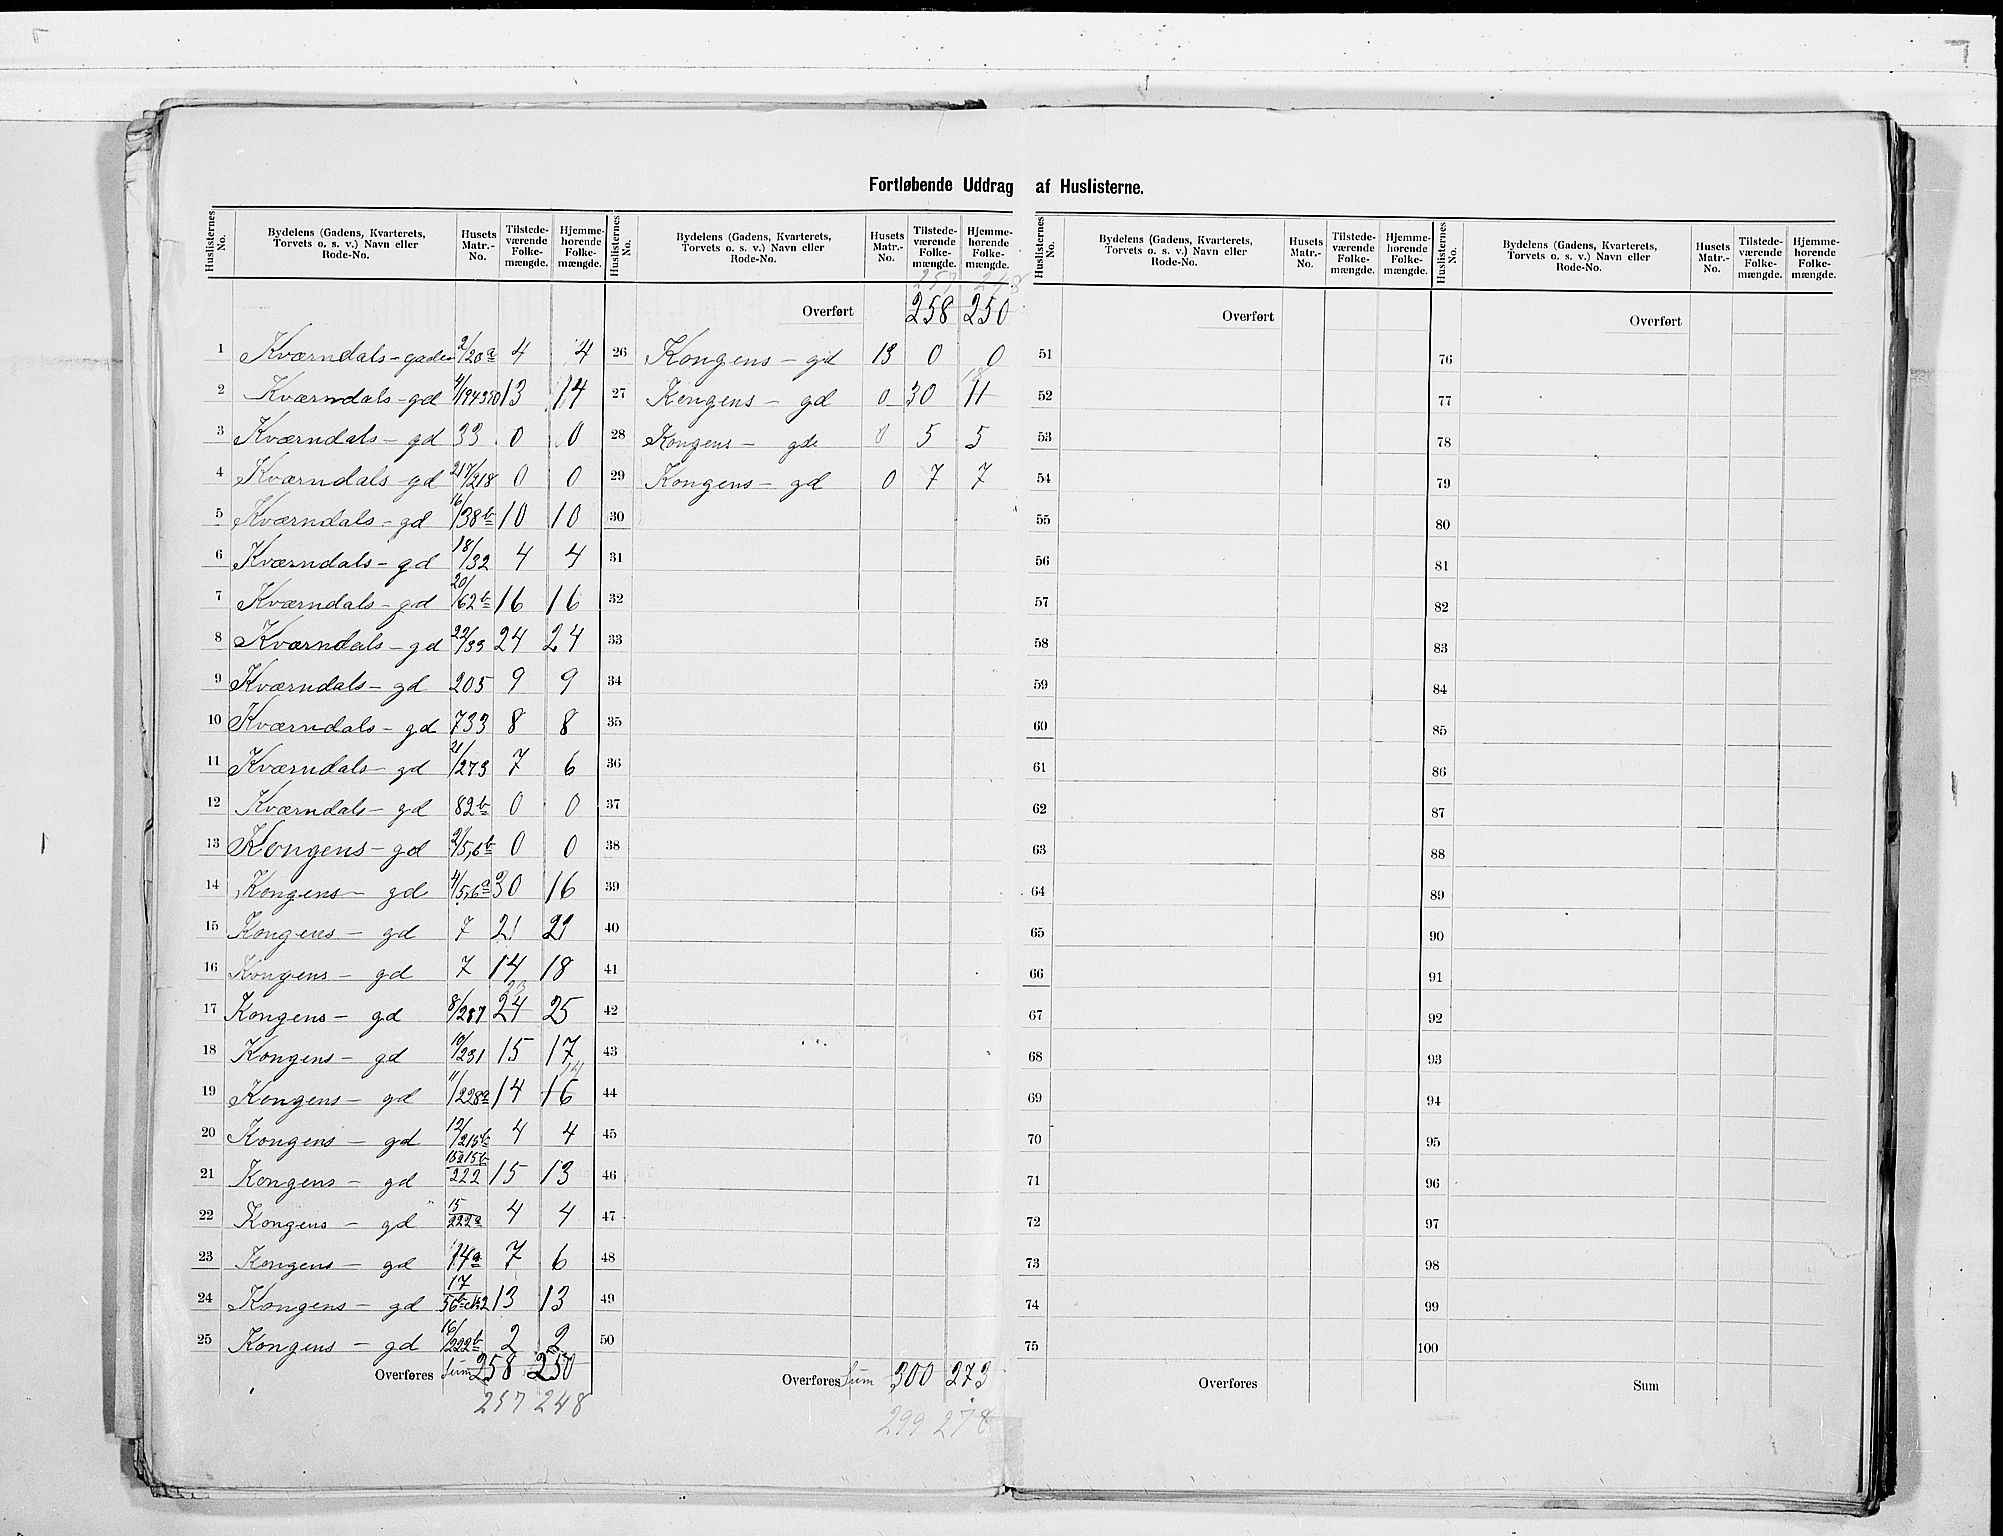 Fortløbende Uddrag af Huslisterne.
Huslisternes No. Bydelens (Gadens, Kvarterets, Torvets o. s. v.) Navn eller Rode-No. Husets Matr.-No. Tilstedeværende Folkemængde. Hjemmehørende Folkemængde. Huslisternes No. Bydelens (Gadens, Kvarterets, Torvets o. s. v.) Navn eller Rode-No. Husets Matr.-No. Tilstedeværende Folkemængde. Hjemmehørende Folkemængde. Huslisternes No. Bydelens (Gadens, Kvarterets, Torvets o. s. v.) Navn eller Rode-No. Husets Matr.-No. Tilstedeværende Folkemængde. Hjemmehørende Folkemængde. Huslisternes No. Bydelens (Gadens, Kvarterets, Torvets o. s. v.) Navn eller Rode-No. Husets Matr.-No. Tilstedeværende Folkemængde. Hjemmehørende Folkemængde.
257 248
Overført 258 250 Overført Overført
1 Kværndals-gaden 2/20a 4 4 26 Kongens-gd 13 0 0 51 76
2 Kværndals-gd 13 14 27 Kongens-gd 0 30 11 52 77
3 Kværndals-gd 33 0 0 28 Kongens-gde 0 5 5 53 78
4 Kværndals-gd 217/218 0 0 29 Kongens-gd 0 7 7 54 79
5 Kværndals-gd 16/38b 10 10 30 55 80
6 Kværndals-gd 18/32 4 4 31 56 81
7 Kværndals-gd 20/62b 16 16 32 57 82
8 Kværndals-gd 22/33 24 24 33 58 83
9 Kværndals-gd 205 9 9 34 59 84
10 Kværndals-gd 733 8 8 35 60 85
11 Kværndals-gd 21/273 7 6 36 61 86
12 Kværndals-gd 82b 0 0 37 62 87
13 Kongens-gd 2/5,6b 0 0 38 63 88
14 Kongens-gd 4/5,6a 30 16 39 64 89
15 Kongens-gd 7 21 21 40 65 90
16 Kongens-gd 7 14 18 41 66 91
23
17 Kongens-gd 8/287 24 25 42 67 92
18 Kongens-gd 10/231 15 17 43 68 93
14
19 Kongens-gd 11/228a 14 16 44 69 94
20 Kongens-gd 12/215b 4 4 45 70 95
21 Kongens-gd 15a15b/222 15 13 46 71 96
22 Kongens-gd 15/222a 4 4 47 72 97
23 Kongens-gd 14a 7 6 48 73 98
24 Kongens-gd 13 13 49 74 99
25 Kongens-gd 16/222b 2 2 50 75 100
Overføres Sum 258 250 Overføres Sum 300 273 Overføres Sum
257 248 299 278